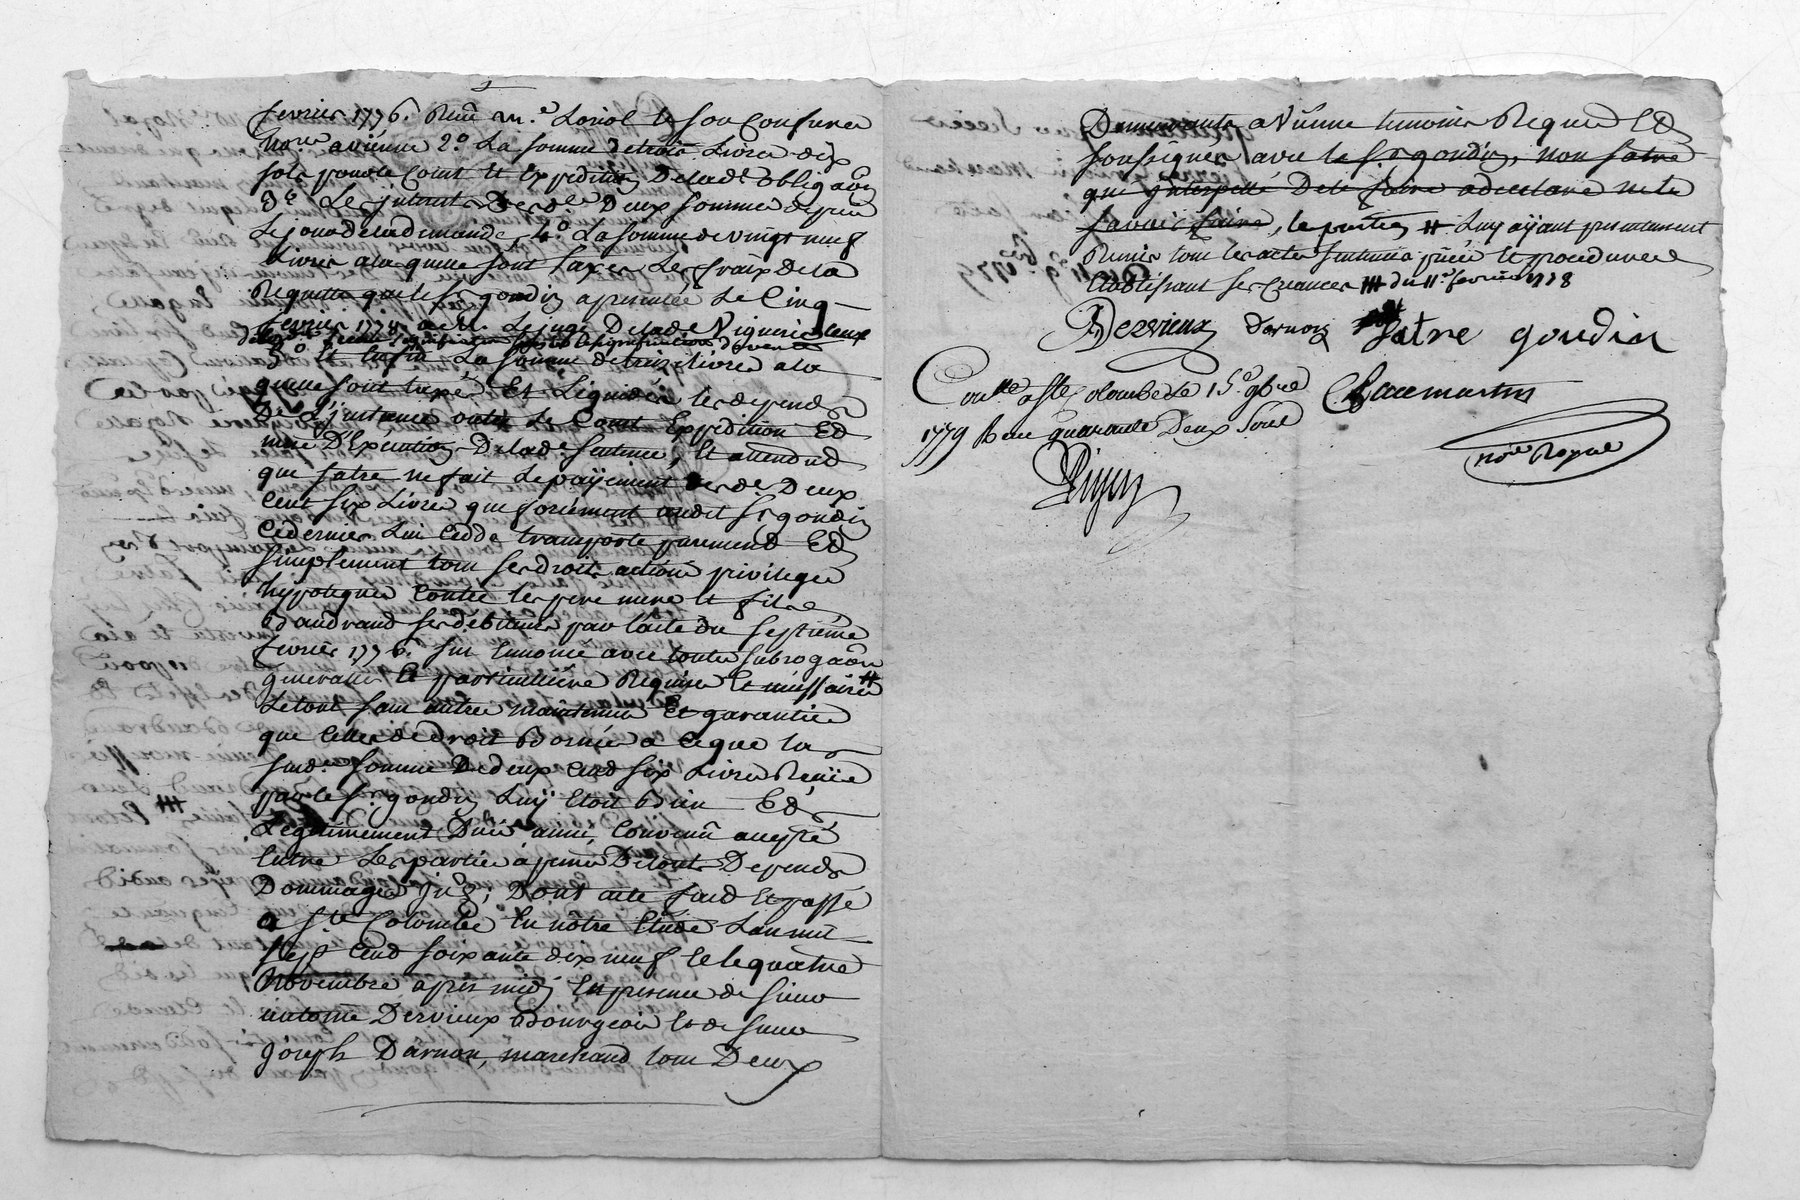 fevrier 1776. Reçu Me. Loriol & son Confrere
Nore. a vienne 2°. La somme de trois Livres dix
sols pour le Coint et Expedition De lad. obligaõn
3°. Les jnterets Desd. Deux sommes depuis
Le jour de la demande, 4°. La somme de vingt neuf
Livres a la quelle sont taxés Les fraix De la
Requette que le Sr. goudin a presentée Le Cinq
fevrier 1778. a M. Le juge De lad. Viguerie
5°. Et Enfin La somme de Livres a la
quelle sont taxés Et Liquidés les depends
De L'jnstance outre Le Coint Expedition Et
mise D'Execution De lad. Sentence, Et attendu
que fatre ne fait Le payement desd. Deux
cent six Livres que forcement audit Sr. goudin
Ce dernier Lui Cedde transporte purement Et
simplement tous ses droits actions privileges
hypoteques contre les pere mere et fils
Baudrand ses debiteurs par l'acte du septieme
fevrier 1776. sus Enoncé avec toutes subrogaõns
generalles & particulieres Requises et necessaires #
Le tout sans autre maintenue Et garantie
que celles de droit Bornée a ce que la
susd. somme De deux cent six Livres Reçüe
par le Sr. goudin Luy Etoit Bien Et
Legitimement Düe ainsi Convenu accepté
Entre Les parties a peine De tous Depends
Dommages jnts, Dont acte fait et passé
a Ste. Colombe En nôtre Etude L'an mil
sept Cent soixante dix neuf & le quatre
Novembre apres midy En presence de sieur
antoine Dervieux Bourgeois & de sieur
joseph Darnon, marchand tous Deux
Demeurants a Vienne temoins Requis Et
soussignés avec le Sr. goudin, non fatre
qui jnterpellé De le faire a declaré ne le
savoir faire, les parties # Luy ayant presentement
Remis tous les actes sentence pieces et procedures
Etablissant ses creances ### du 11e. fevrier 1778
Dervieux Darnon fatre goudin
Coullé a Ste Colombe le 15e. 9bre
1779 Reçu quarante Deux sols
note Royal